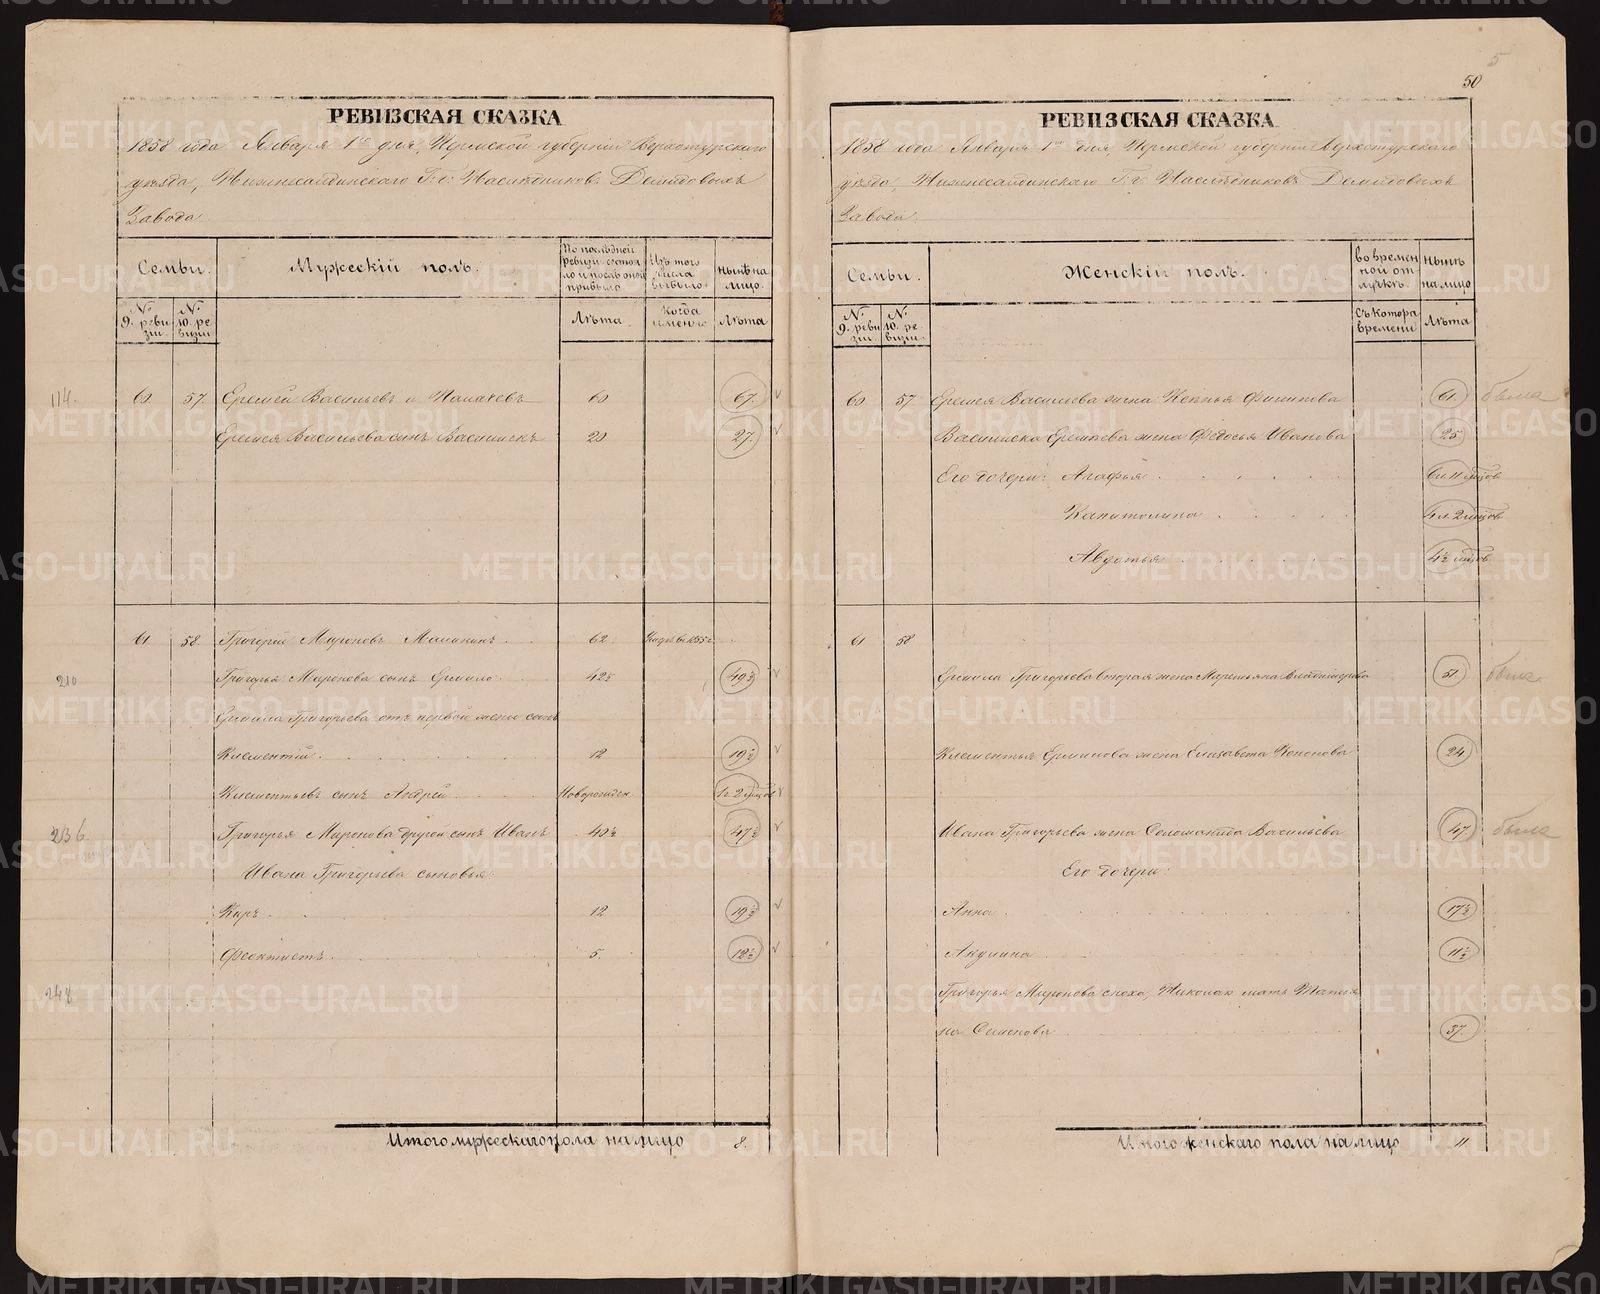 5
50
РЕВИЗСКАЯ СКАЗКА
1858 года Января 1го дня, Пермской губернии Верхотурскаго
уезда, Нижнесалдинскаго Г.г. Наследников Демидовыхъ
Завода
Семьи.
Мужескiй полъ.
По последней ревизiи состояло и после оной прибыло
Изъ того числа выбыло
Ныне на лицо.
№ 9. ревизiи.
№ 10. ревизiи
Лета.
Когда именно
Лета
114.
60 57. Еремей Васильевъ 60 67.
Еремея Васильева сынъ Василискъ 20 27.
61 58. Григорий Мироновъ Малыгинъ 62 1855
210 Григорья Миронова сынъ Ермило 42½ 49½
Ермила Григорьева отъ первой жены сынъ
Клементiй 12 19½
Клементьевъ сынъ Андрей Новорожден 1г. 2 месцов
236 Григорья Миронова другой сынъ Иванъ 40½ 47½
Ивана Григорьева сыновья:
Каръ 12 19½
Феоктистъ 5. 12½
248
Итого мужескаго пола на лицо 8.
РЕВИЗСКАЯ СКАЗКА
1858 года Января 1го дня, Пермской губернии Верхотурскаго
уезда, Нижнесалдинскаго Г.г. Наследниковъ Демидовыхъ
Завода.
Семьи.
Женскiй полъ.
Во временной отлучке.
Ныне на лицо
№ 9. ревизiи.
№ 10. ревизiи.
Съ котора времени
Лета
60 57 Еремея Васильева жена Ксенья Филипова 61 была
Василиска Еремеева жена Федосья Иванова 25
Его дочери: Агафья 6 л 11 месцов
Капитолина 4 л. 2 месцов
Авдотья 4½ месцов
61 58
Ермила Григорьева вторая жена Маремьяна Владимiрова 51 была
Клементья Ермилова жена Елизавета Кононова 24
Ивана Григорьева жена Соломанида Васильева 47. была
Его дочери:
Анна 17½
Акулина 11½
Григорья Миронова сноха, мать Татья
на Семенова 37.
Итого женскаго пола на лицо 11
METRIKI.GASO-URAL.RU